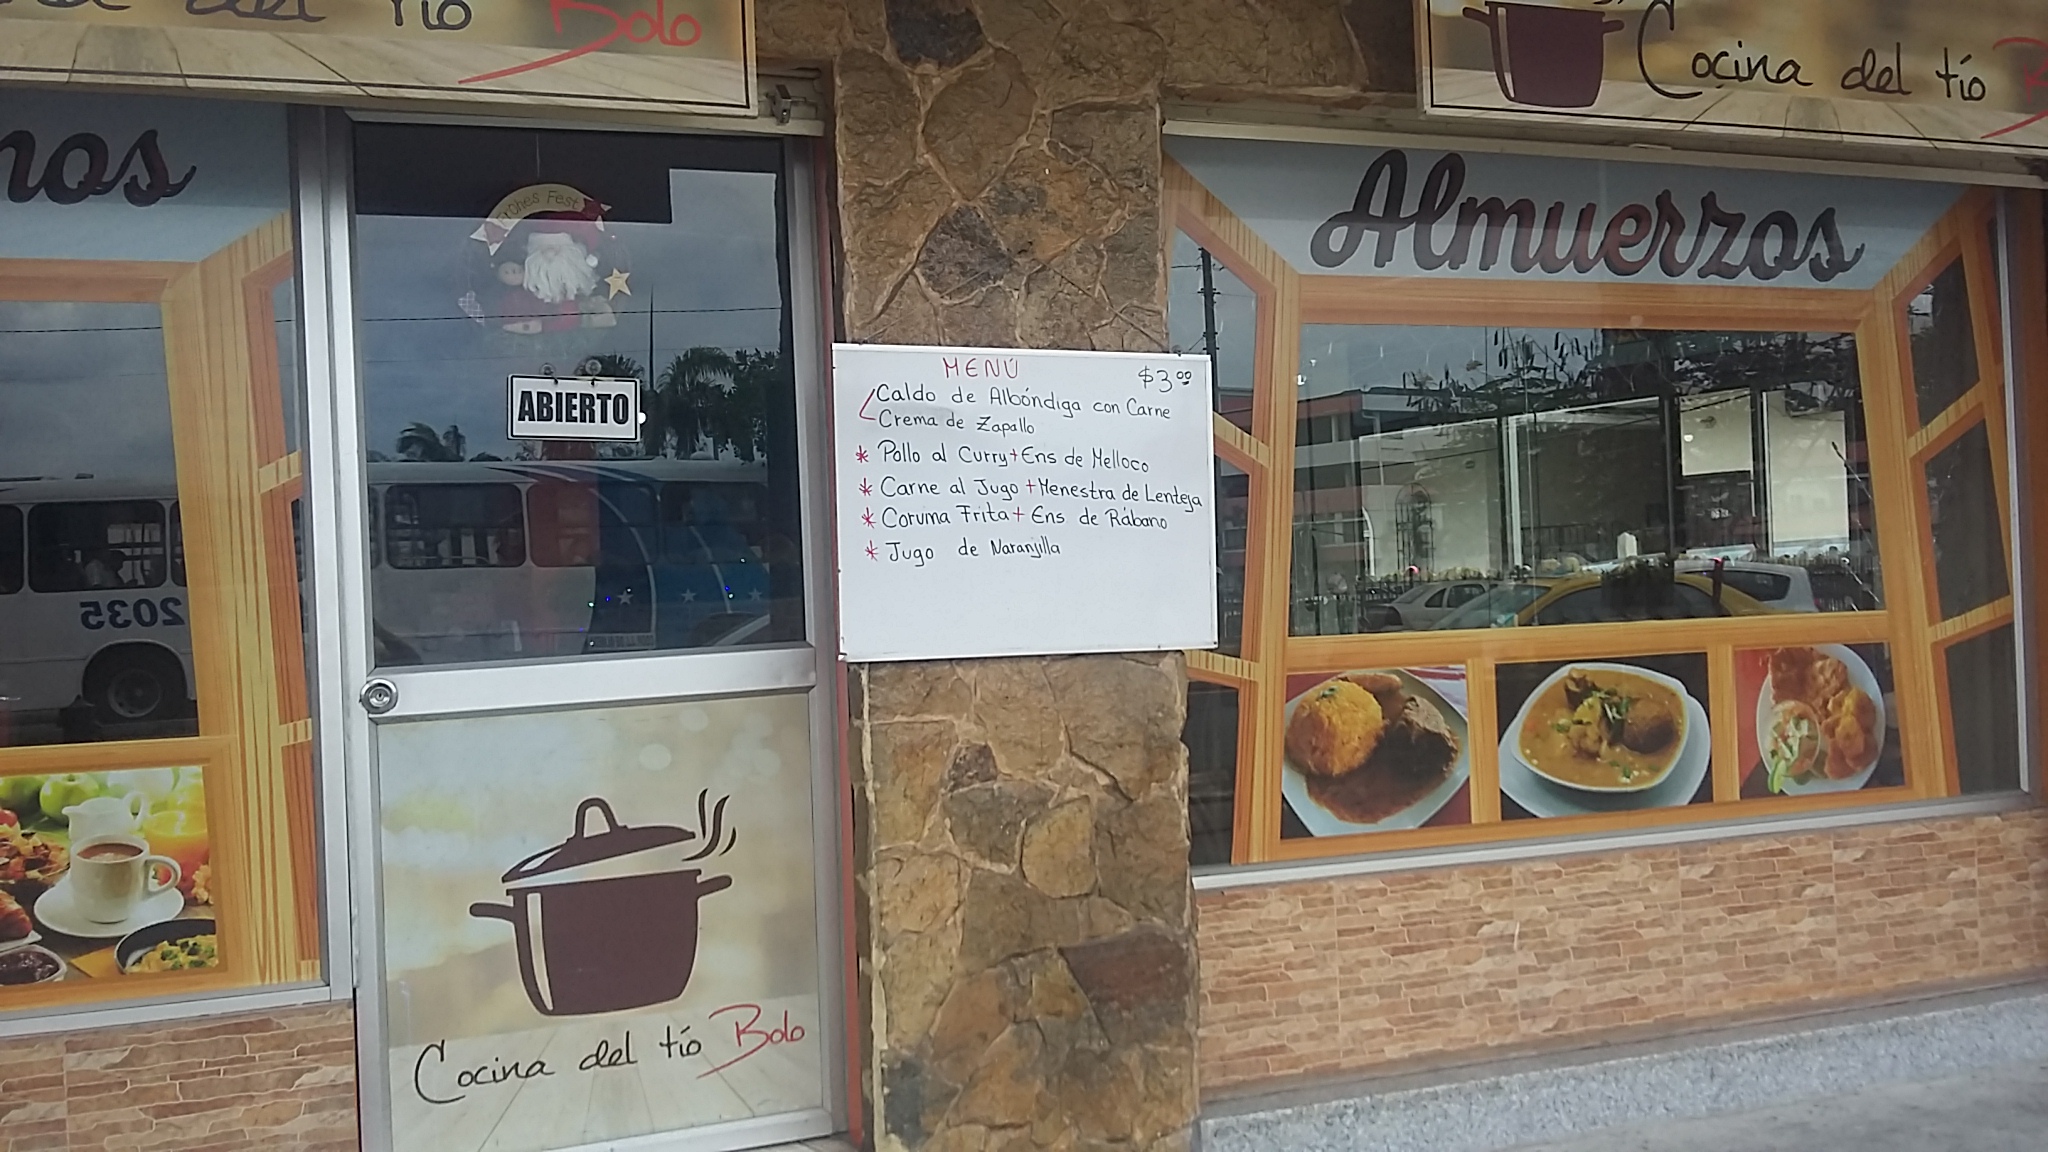 del tío Bolo
Cocina del tío
nos
Almuerzos
Frohes Fest
ABIERTO
MENÚ $3.00
Caldo de Albóndiga con Carne
Crema de Zapallo
* Pollo al Curry + Ens de Melloco
* Carne al Jugo + Menestra de Lenteja
* Corvina Frita + Ens de Rábano
* Jugo de Naranjilla
2035
Cocina del tío Bolo